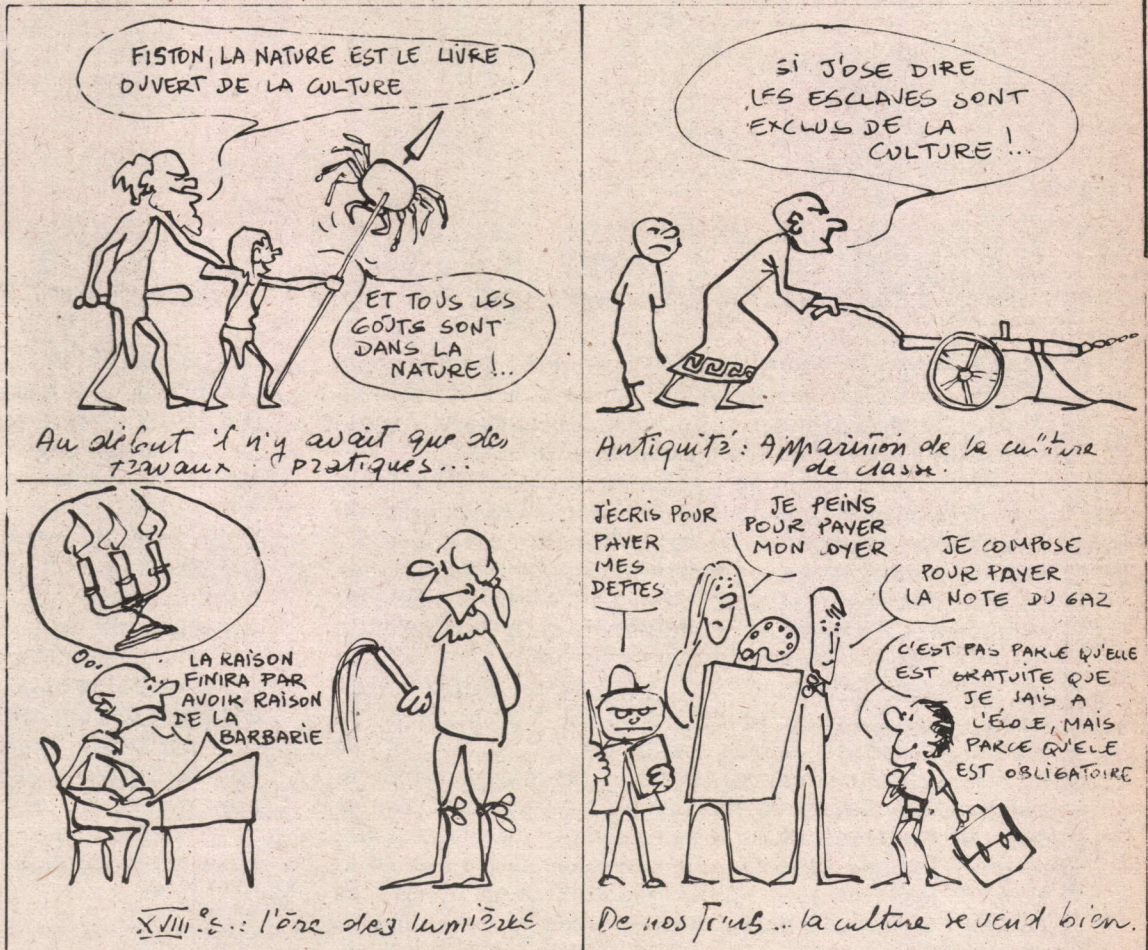 FISTON, LA NATURE EST LE LIVRE
OUVERT DE LA CULTURE
ET TOUS LES
GOÛTS SONT
DANS LA
NATURE !..
Au début il n'y avait que des
travaux pratiques...
SI J'OSE DIRE
LES ESCLAVES SONT
EXCLUS DE LA
CULTURE !..
Antiquité : Apparition de la culture
de classe.
LA RAISON
FINIRA PAR
AVOIR RAISON
DE LA
BARBARIE
XVIII.e s. : l'ère des lumières
J'ECRIS POUR
PAYER
MES
DETTES
JE PEINS
POUR PAYER
MON LOYER
JE COMPOSE
POUR PAYER
LA NOTE DU GAZ
C'EST PAS PARCE QU'ELLE
EST GRATUITE QUE
JE VAIS A
L'ÉCOLE, MAIS
PARCE QU'ELLE
EST OBLIGATOIRE
De nos jours... la culture se vend bien.